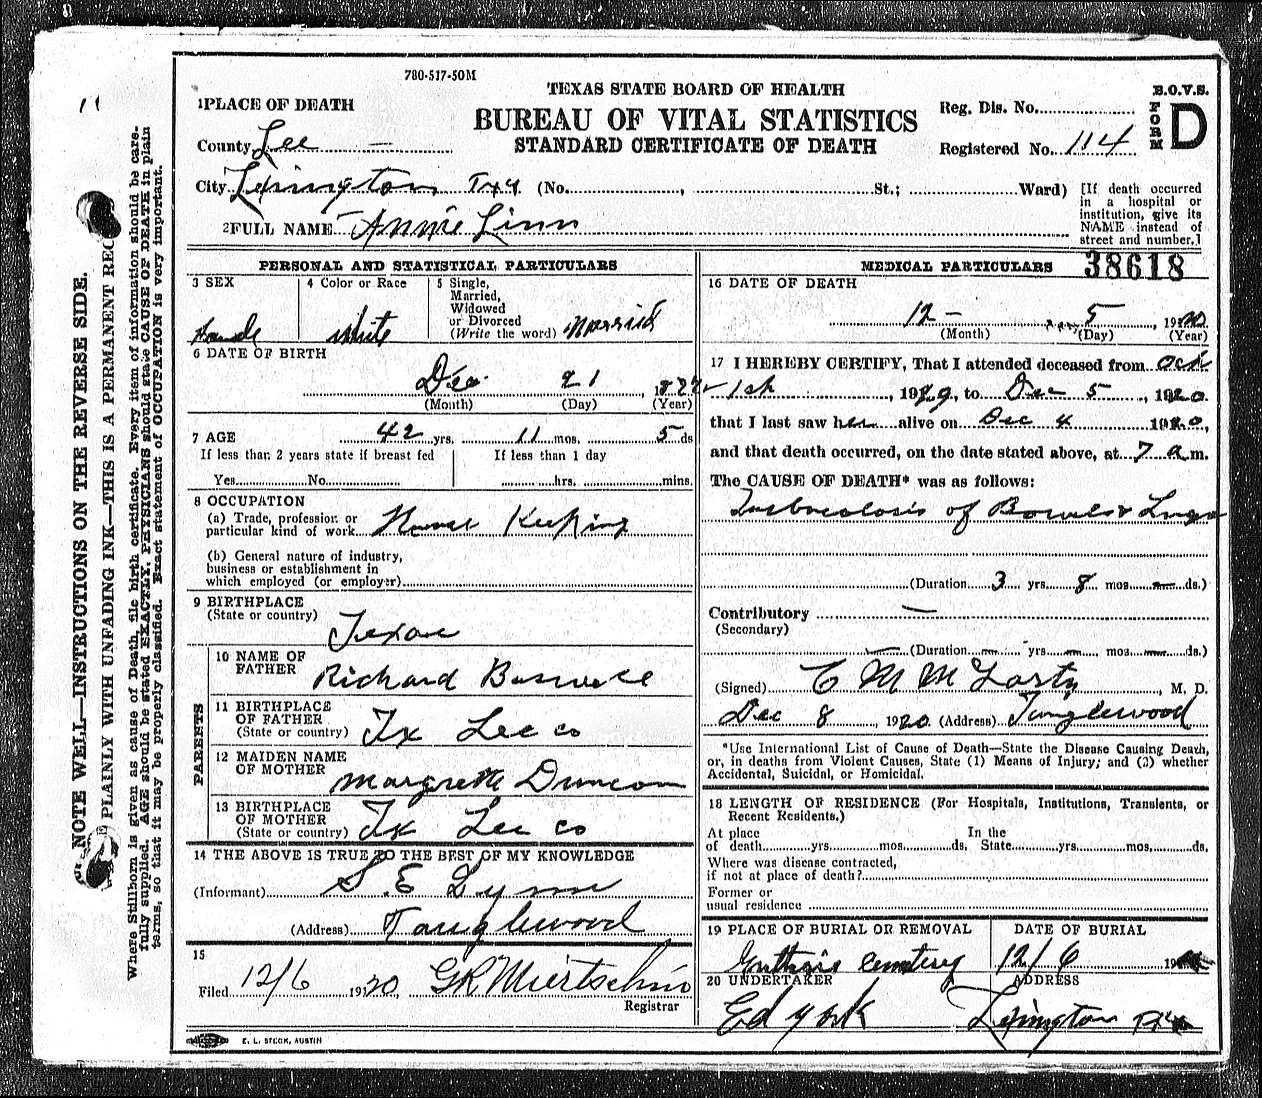 780-517-50M
TEXAS STATE BOARD OF HEALTH
BUREAU OF VITAL STATISTICS
STANDARD CERTIFICATE OF DEATH
B.O.V.S.
FORM D
Reg. Dis. No.
Registered No. 114
1 PLACE OF DEATH
County Lee
City Lexington Tx (No. , St.; Ward)
[If death occurred
in a hospital or
institution, give its
NAME instead of
street and number.]
2 FULL NAME Annie Linn
PERSONAL AND STATISTICAL PARTICULARS
3 SEX
Female
4 Color or Race
White
5 Single,
Married,
Widowed
or Divorced
(Write the word) Married
6 DATE OF BIRTH
Dec 21
(Month) (Day) (Year)
7 AGE
42 yrs. 11 mos. 5 ds
If less than 2 years state if breast fed
Yes No
If less than 1 day
hrs. mins.
8 OCCUPATION
(a) Trade, profession or
particular kind of work House Keeping
(b) General nature of industry,
business or establishment in
which employed (or employer)
9 BIRTHPLACE
(State or country)
Texas
PARENTS
10 NAME OF
FATHER
Richard
11 BIRTHPLACE
OF FATHER
(State or country) Tx Lee co
12 MAIDEN NAME
OF MOTHER
Margrette Duncan
13 BIRTHPLACE
OF MOTHER
(State or country) Tx Lee co
14 THE ABOVE IS TRUE TO THE BEST OF MY KNOWLEDGE
(Informant) S. E Lynn
(Address) Tanglewood
15
Filed 12/6 1920 GR Miertschin
Registrar
MEDICAL PARTICULARS 38618
16 DATE OF DEATH
12 - 5, 1920
(Month) (Day) (Year)
17 I HEREBY CERTIFY, That I attended deceased from Oct
1st, 19 , to Dec 5, 1920
that I last saw her alive on Dec 4 1920,
and that death occurred, on the date stated above, at 7 a m.
The CAUSE OF DEATH* was as follows:
Tuberculosis of Bowels & Lungs
(Duration 3 yrs. 8 mos. — ds.)
Contributory —
(Secondary)
— (Duration — yrs. — mos. — ds.)
(Signed) C M , M. D.
Dec 8, 1920 (Address) Tanglewood
*Use International List of Cause of Death—State the Disease Causing Death,
or, in deaths from Violent Causes, State (1) Means of Injury; and (2) whether
Accidental, Suicidal, or Homicidal.
18 LENGTH OF RESIDENCE (For Hospitals, Institutions, Transients, or
Recent Residents.)
At place
of death yrs. mos. ds.
In the
State yrs. mos. ds.
Where was disease contracted,
if not at place of death?
Former or
usual residence
19 PLACE OF BURIAL OR REMOVAL
Guthrie Cemetery
DATE OF BURIAL
12/6 19
20 UNDERTAKER
Ed York
ADDRESS
Lexington
E. L. STECK, AUSTIN
NOTE WELL—INSTRUCTIONS ON THE REVERSE SIDE.
PLAINLY WITH UNFADING INK—THIS IS A PERMANENT REC
Where Stillborn is given as cause of Death, file birth certificate. Every item of information should be care-
fully supplied. AGE should be stated EXACTLY. PHYSICIANS should state CAUSE OF DEATH in plain
terms, so that it may be properly classified. Exact statement of OCCUPATION is very important.